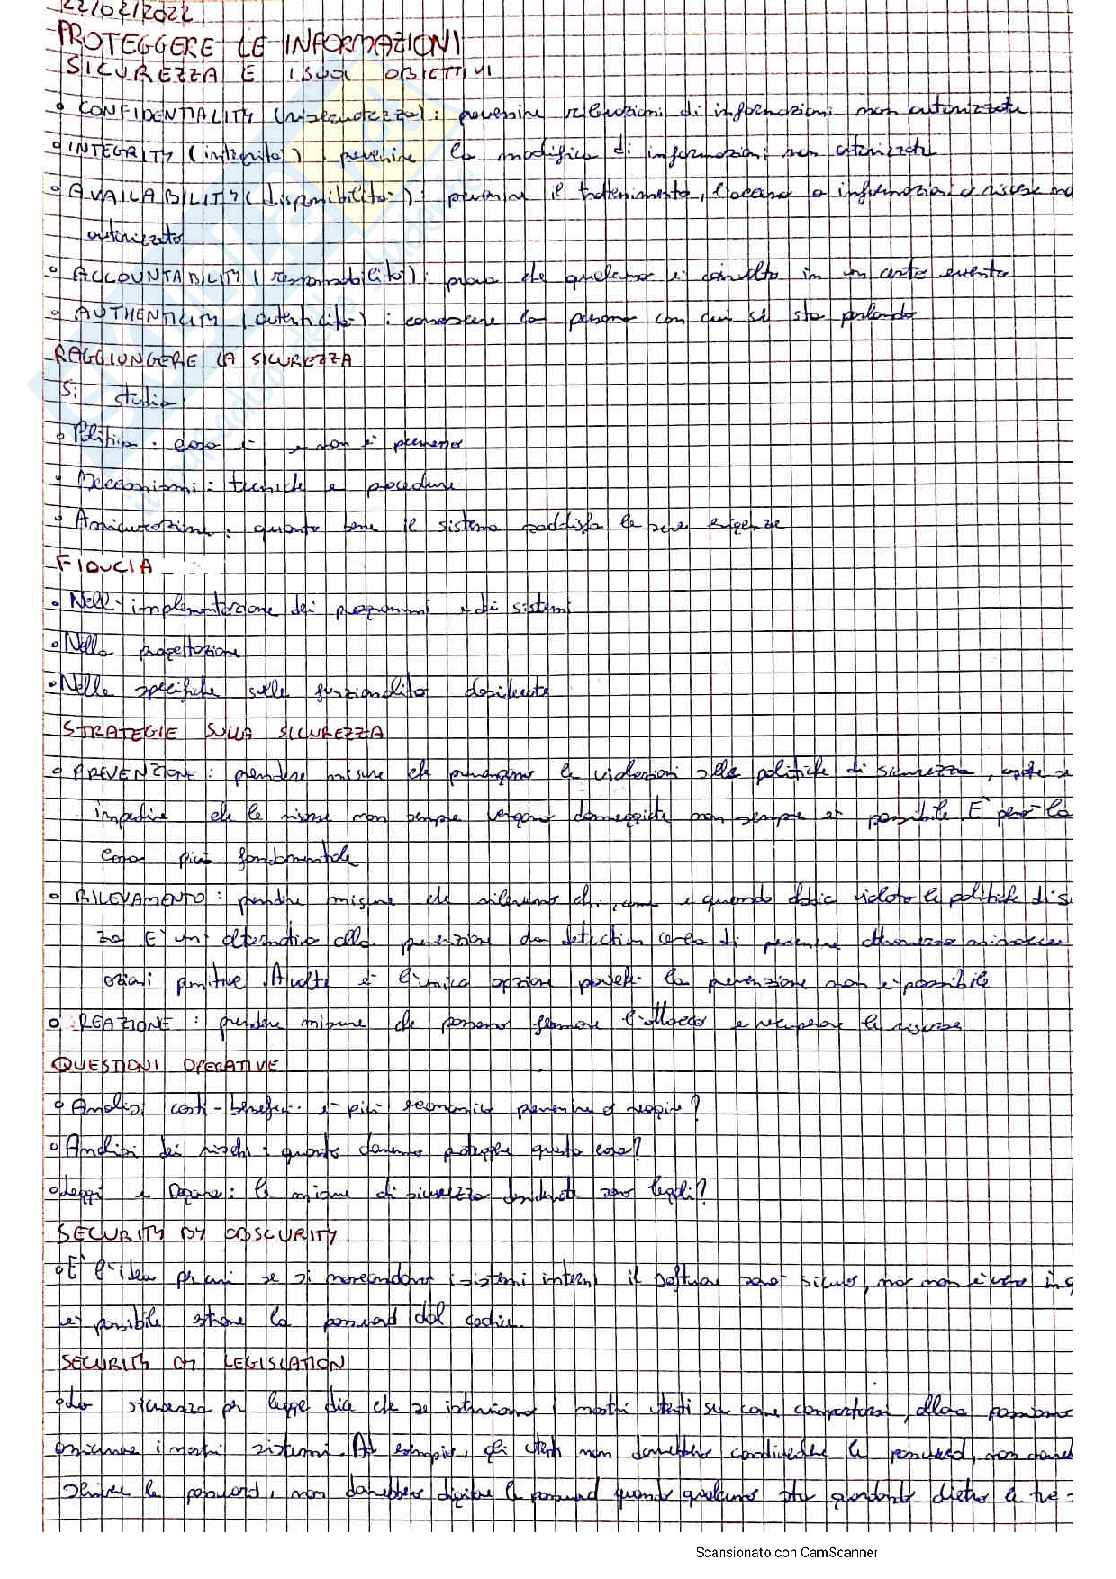 22/02/2022
PROTEGGERE LE INFORMAZIONI
SICUREZZA E I SUOI OBIETTIVI
• CONFIDENTIALITY (riservatezza): prevenire rilevazioni di informazioni non autorizzate
• INTEGRITY (integrità): prevenire la modifica di informazioni non autorizzate
• AVAILABILITY (disponibilità): prevenire il trattenimento, l'accesso a informazioni e risorse no
autorizzato
• ACCOUNTABILITY (responsabilità): prova che qualcuno è coinvolto in un certo evento
• AUTHENTICITY (autenticità): conoscere la persona con cui si sta parlando
RAGGIUNGERE LA SICUREZZA
Si studia
• Politica: cosa è e non è permesso
• Meccanismi: tecniche e procedure
• Assicurazione: quanto bene il sistema soddisfa le sue esigenze
FIDUCIA
• Nell'implementazione dei programmi e di sistemi
• Nella progettazione
• Nelle specifiche sulle funzionalità desiderate
STRATEGIE SULLA SICUREZZA
• PREVENZIONE: prendere misure che prevengono le violazioni alle politiche di sicurezza,
impedire che le risorse non sempre vengano danneggiate non sempre è possibile. E' però la
cosa più fondamentale
• RILEVAMENTO: prendere misure che rilevano chi, come e quando abbia violato le politiche di s
za. E' un'alternativa alla prevenzione. La detection cerca di prevenire attraverso minacce
azioni punitive. A volte è l'unica opzione poiché la prevenzione non è possibile
• REAZIONE: prendere misure che possano fermare l'attacco e recuperare le risorse
QUESTIONI OPERATIVE
• Analisi costi-benefici: è più economico prevenire o reagire?
• Analisi dei rischi: quanto dovremmo proteggere questa cosa?
• Leggi e Dogane: le misure di sicurezza desiderate sono legali?
SECURITY BY OBSCURITY
• E' l'idea per cui se si nascondono i sistemi interni il software sarà sicuro, ma non è vero in q
è possibile estrarre la password dal codice.
SECURITY BY LEGISLATION
• La sicurezza per legge dice che se istruiamo i nostri utenti su come comportarsi, allora possiamo
assicurare i nostri sistemi. Ad esempio, gli utenti non dovrebbero condividere le password, non dovre
scrivere le password, non dovrebbero digitare le password quando qualcuno sta guardando dietro a
Scansionato con CamScanner